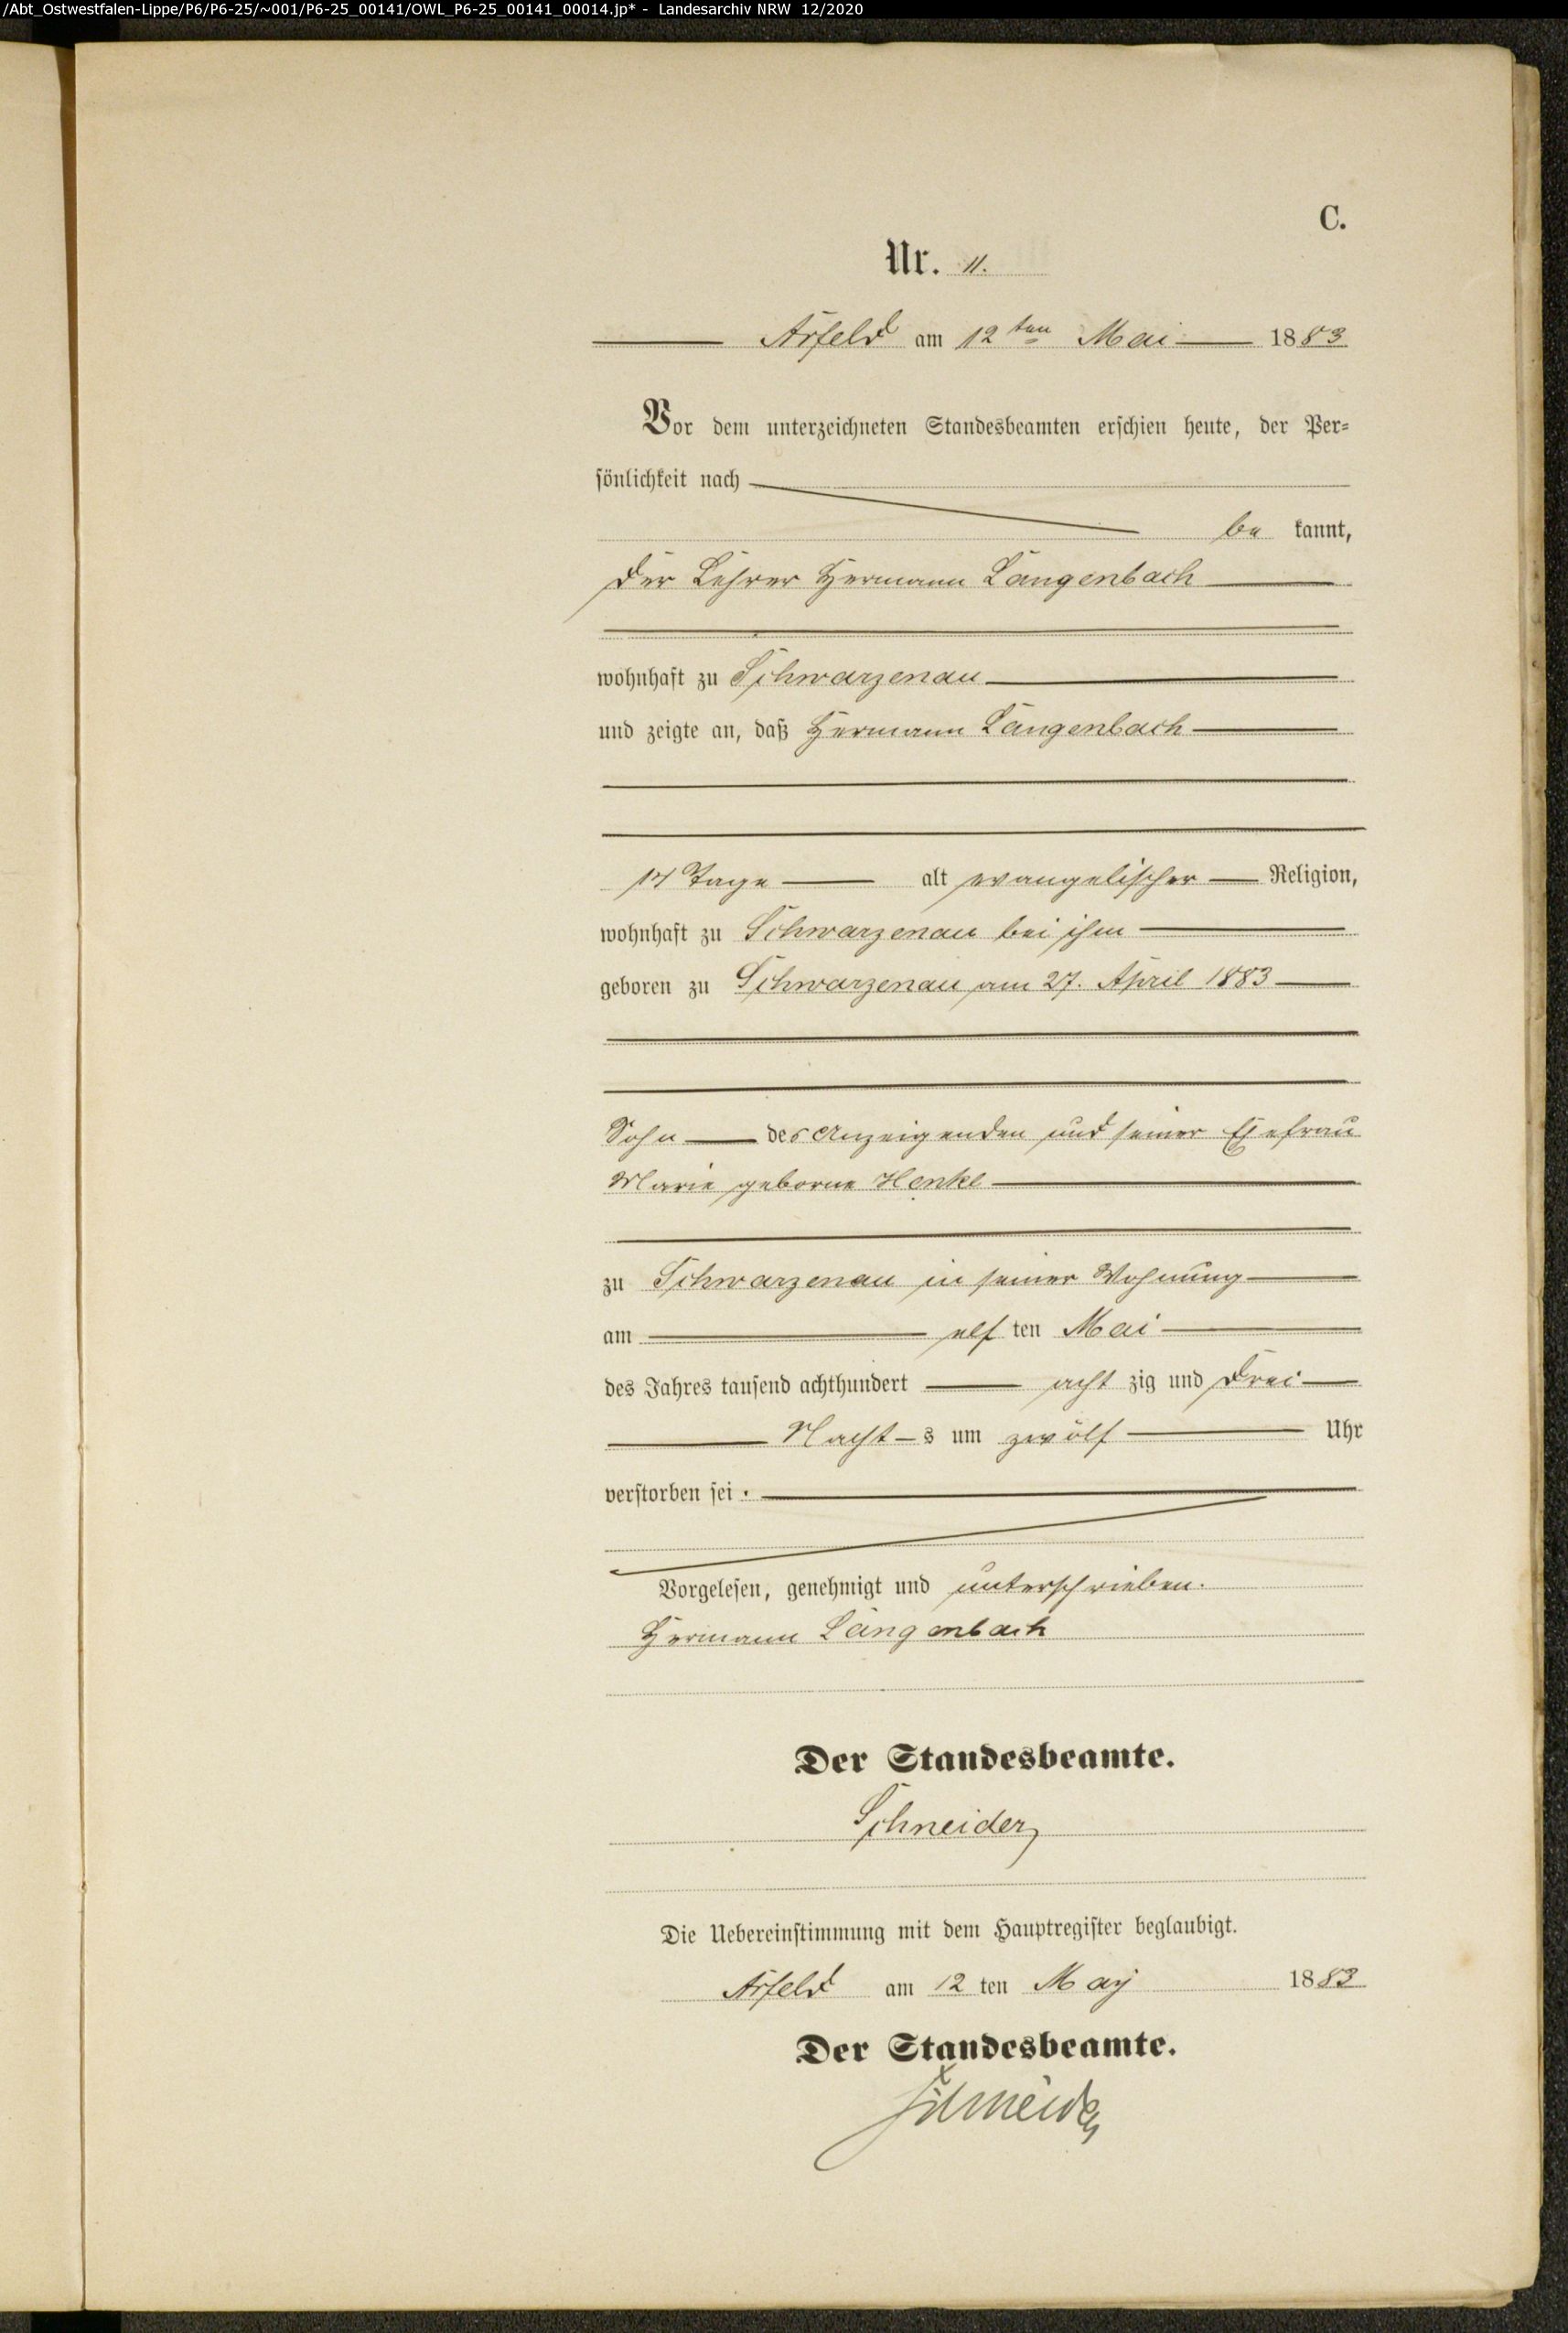 /Abt_Ostwestfalen-Lippe/P6/P6-25/~001/P6-25_00141/OWL_P6-25_00141_00014.jp* - Landesarchiv NRW 12/2020
C.
Nr. 11.
Arfeld am 12ten Mai 1883
Vor dem unterzeichneten Standesbeamten erschien heute, der Per=
sönlichkeit nach
be kannt,
der Lehrer Hermann Langenbach
wohnhaft zu Schwarzenau
und zeigte an, daß Hermann Langenbach
14 Tage alt evangelischer Religion,
wohnhaft zu Schwarzenau bei ihm
geboren zu Schwarzenau am 27. April 1883
Sohn des Anzeigenden und seiner Ehefrau
Marie geborne Henkel
zu Schwarzenau in seiner Wohnung
am elf ten Mai
des Jahres tausend achthundert acht zig und drei
Nacht-s um zwölf Uhr
verstorben sei.
Vorgelesen, genehmigt und unterschrieben.
Hermann Langenbach
Der Standesbeamte.
Schneider
Die Uebereinstimmung mit dem Hauptregister beglaubigt.
Arfeld am 12 ten May 1883
Der Standesbeamte.
Schneider